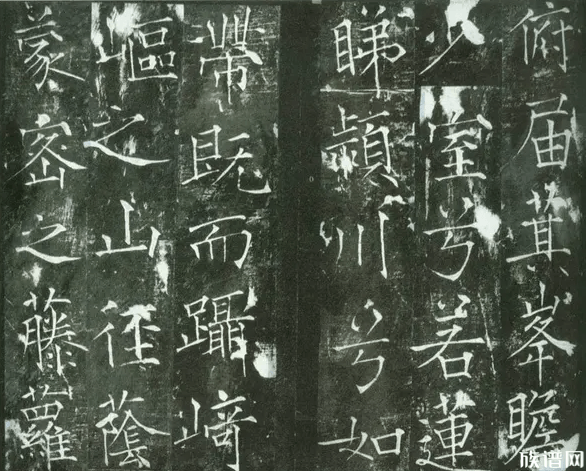 俯届箕峯瞻
少室兮若蓮
睇潁川兮如
帶既而躡崎
嶇之山徑蔭
蒙密之藤蘿
族谱网